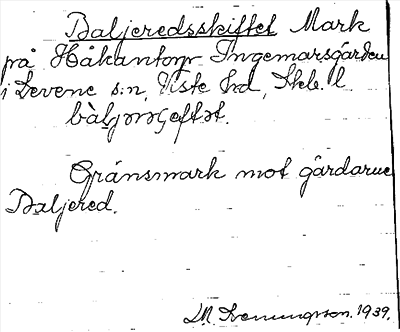 Baljeredsskiftet Mark
på Håkantorp Ingemarsgården
i Levene s:n, Viste hd, Skb. l
Gränsmark mot gårdarne
Baljered.
1939.